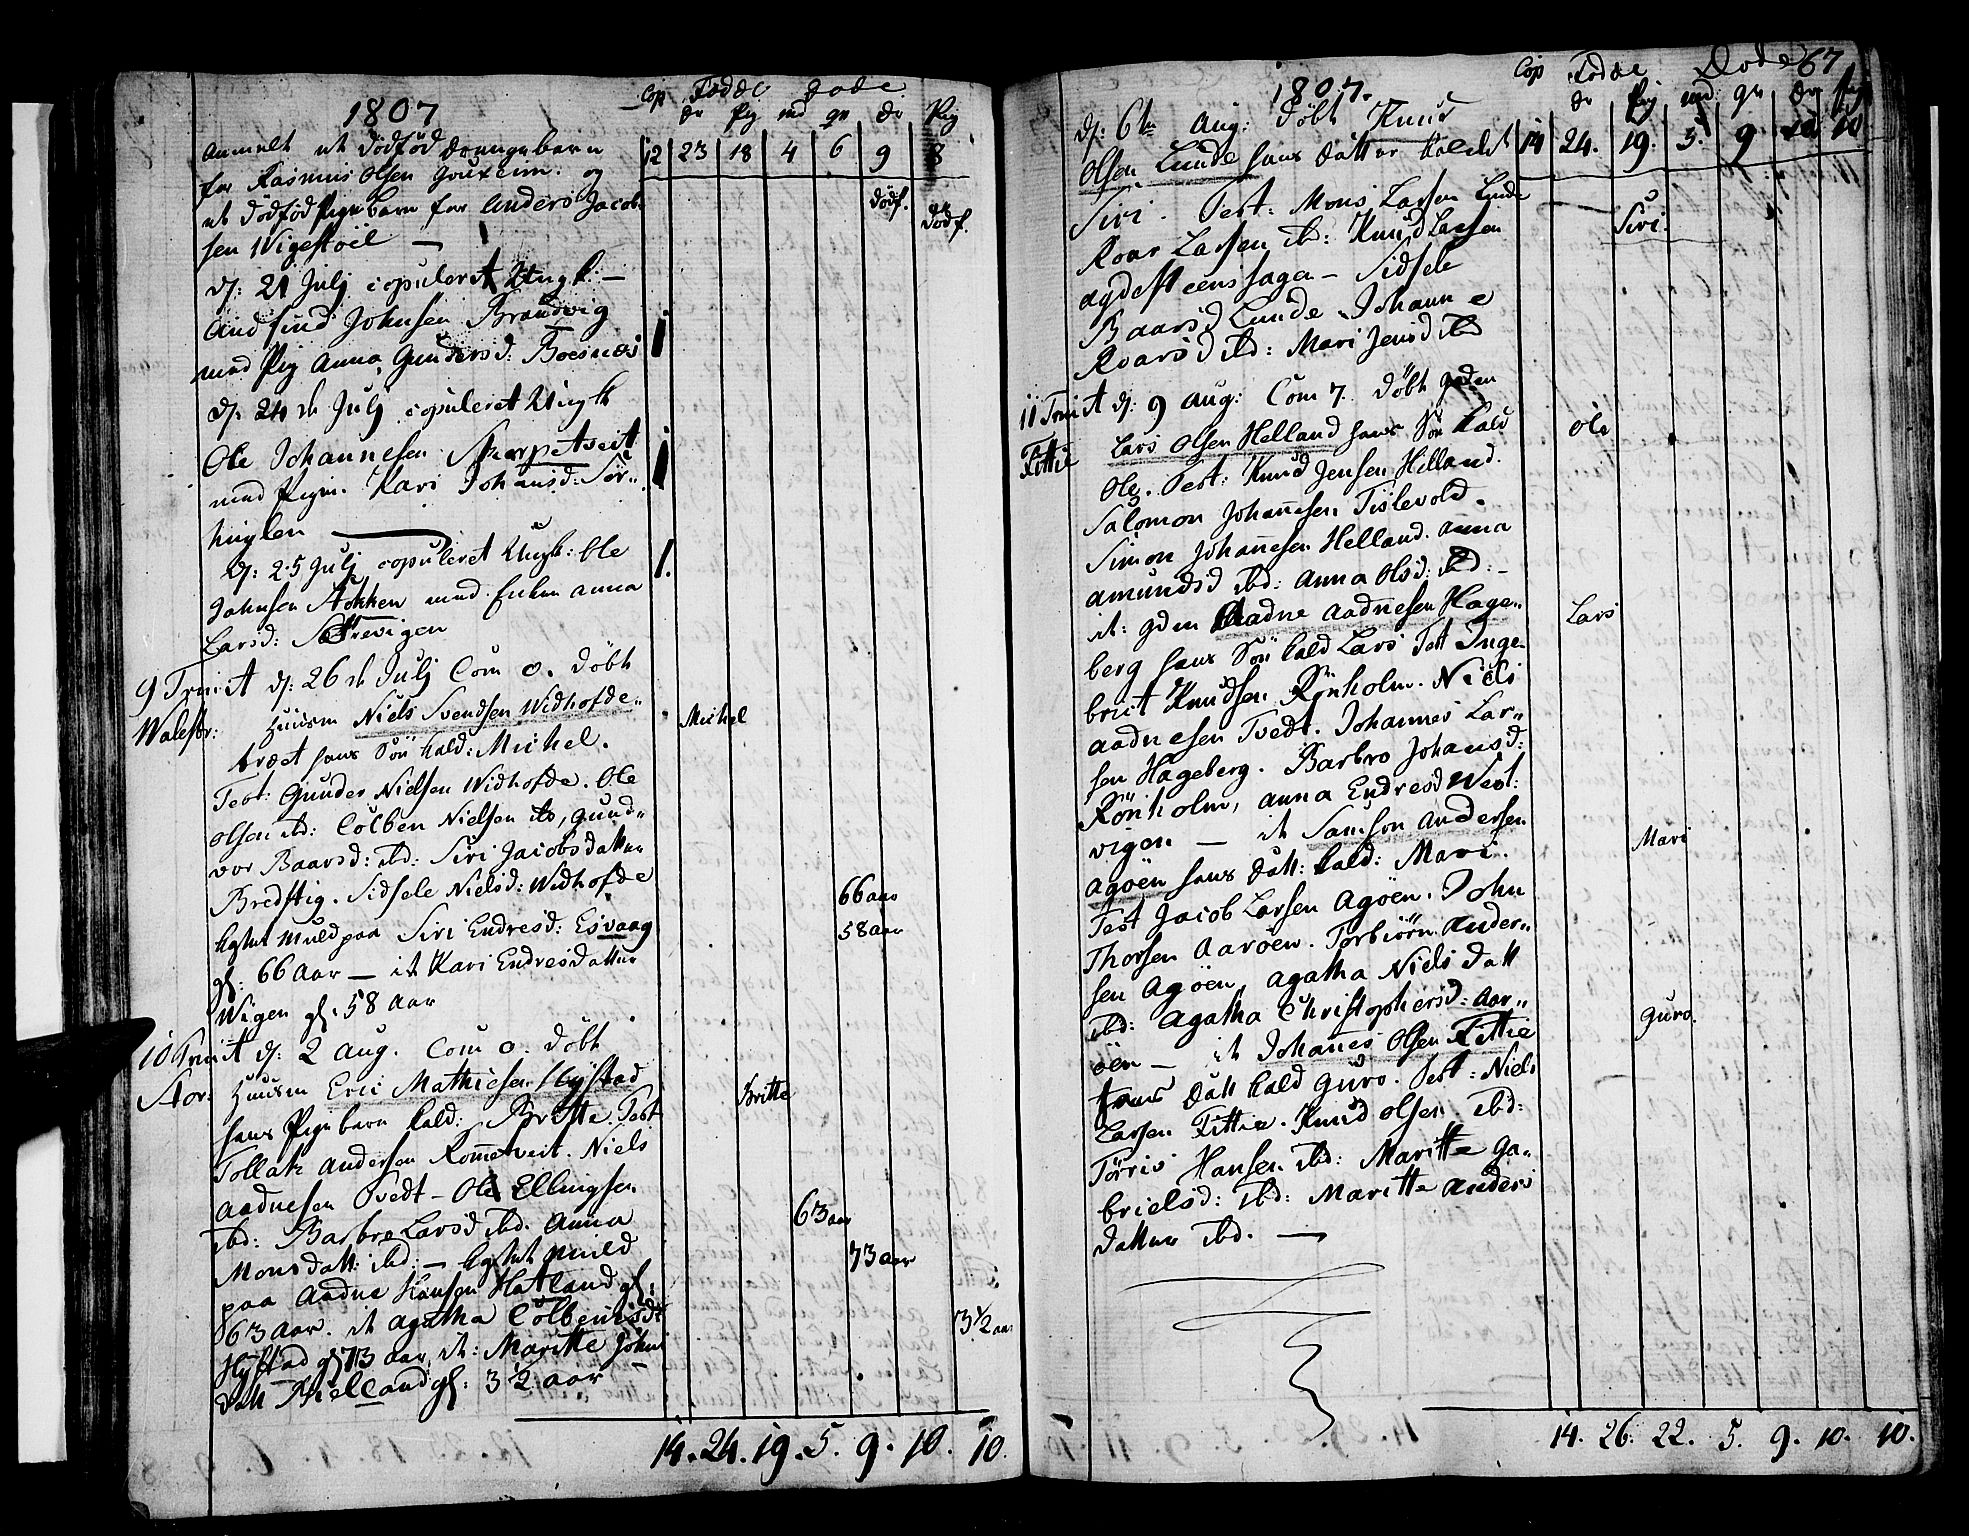 1807
Cop Födde Döde
Dr Pig md qv Dr Pig
12 23 18 4 6 9 8
anmelt et dödföd drengebarn
for Rasmus Olsen og
et dödföd Pigebarn for Anders Jacob
sen Wigestöel —
dödf.
dödf.
d: 21 July copuleret Ungk: —
Johnsen Brandvig
med Pig Anna Gundersd: Boesnes
d: 24 de July copuleret Ungk
Ole Johannesen Skarpetveit
med Pigen Kari Johansd: Sör„
huglen
d: 25 July copuleret Ungk: Ole
Johnsen Stokken med Enken Anna
Larsd: Sætrevigen
9 Trinit d: 26 de July Com 0. döbt
Walestr: Huusm Niels Svendsen Widhofde„
træet hans Sön kald: Michel.
Michel
Test: Gunder Nielsen Widhofde. Ole
Olsen ibd: Colben Nielsen ib, Gund„
vor Baarsd: ibd: Siri Jacobsdatter
Bredstig. Sidsele Nielsd: Widhofde
66 aar
kastet Muld paa Siri Endresd: Esvaag
58 aar
gl: 66 Aar — it Kari Endresdatter
Wigen gl. 58 Aar
10 Trinit d: 2 Aug. Com 0. döbt
Stor: Huusm Eric Mathiesen Hystad
Britte
hans Pigebarn kald: Britte. Test
Tollak Andersen Rommetveit. Niels
Aadnesen Tvedt — Ole Ellingsen
63 aar
ibd: Barbre Larsd ibd. Anna
Monsdatt: ibd: — kastet Muld
73 aar
paa Aadne Hansen Hatland gl:
63 Aar. it Agatha Colbensdr
3 1/2 aar
Hystad gl 73 Aar, it: Maritte Johns
datt Bielland gl: 3 1/2 aar
14. 24. 19. 5. 9. 10. 10.
1807.
Cop Födde Döde 67
Dr Pig md: qv Dr Pig
14 24. 19. 5. 9 10 10
d: 6te Aug: döbt Knud
Olsen Lunde hans datter kaldet
Siri. Test: Mons Larsen Lunde
Siri.
Roar Larsen ibd: Knud Larsen
agdesteens — Sidsele
Baarsd Lunde. Johanne
Roarsd ibd: Mari Jensd ibd
11 Trinit d: 9 Aug: Com 7. döbt gden
Fittie Lars Olsen Helland hans Sön kald
Ole
Ole. Test: Knud Jensen Helland.
Salomon Johannesen Tislevold.
Simon Johannesen Helland. Anna
Amundsd ibd: Anna Olsd: ibd: —
it: gden Aadne Aadnesen Hage„
Lars
berg hans Sön kald Lars Test Inge
brict Knudsen Rönholm. Niels
Aadnesen Tvedt. Johannes Lar„
sen Hageberg. Barbro Johansd:
Rönholm, Anna Endresd West:
vigen — it Samson Andersen
Mari
Agöen hans datt: kald: Mari.
Test Jacob Larsen Agöen. John
Thorsen Aaröen. Torbiörn Ander„
sen Agöen, Agatha Niels datt
ibd: Agatha Christophersd: Aar„
Guro.
öen — it Johannes Olsen Fittie
hans datt kald Guro. Test: Niels
Larsen Fittie. Knud Olsen ibd:
Törris Hansen ibd: Maritte Ga„
brielsd: ibd: Maritte Anders
datter ibd. —
14. 26. 22. 5. 9. 10. 10.